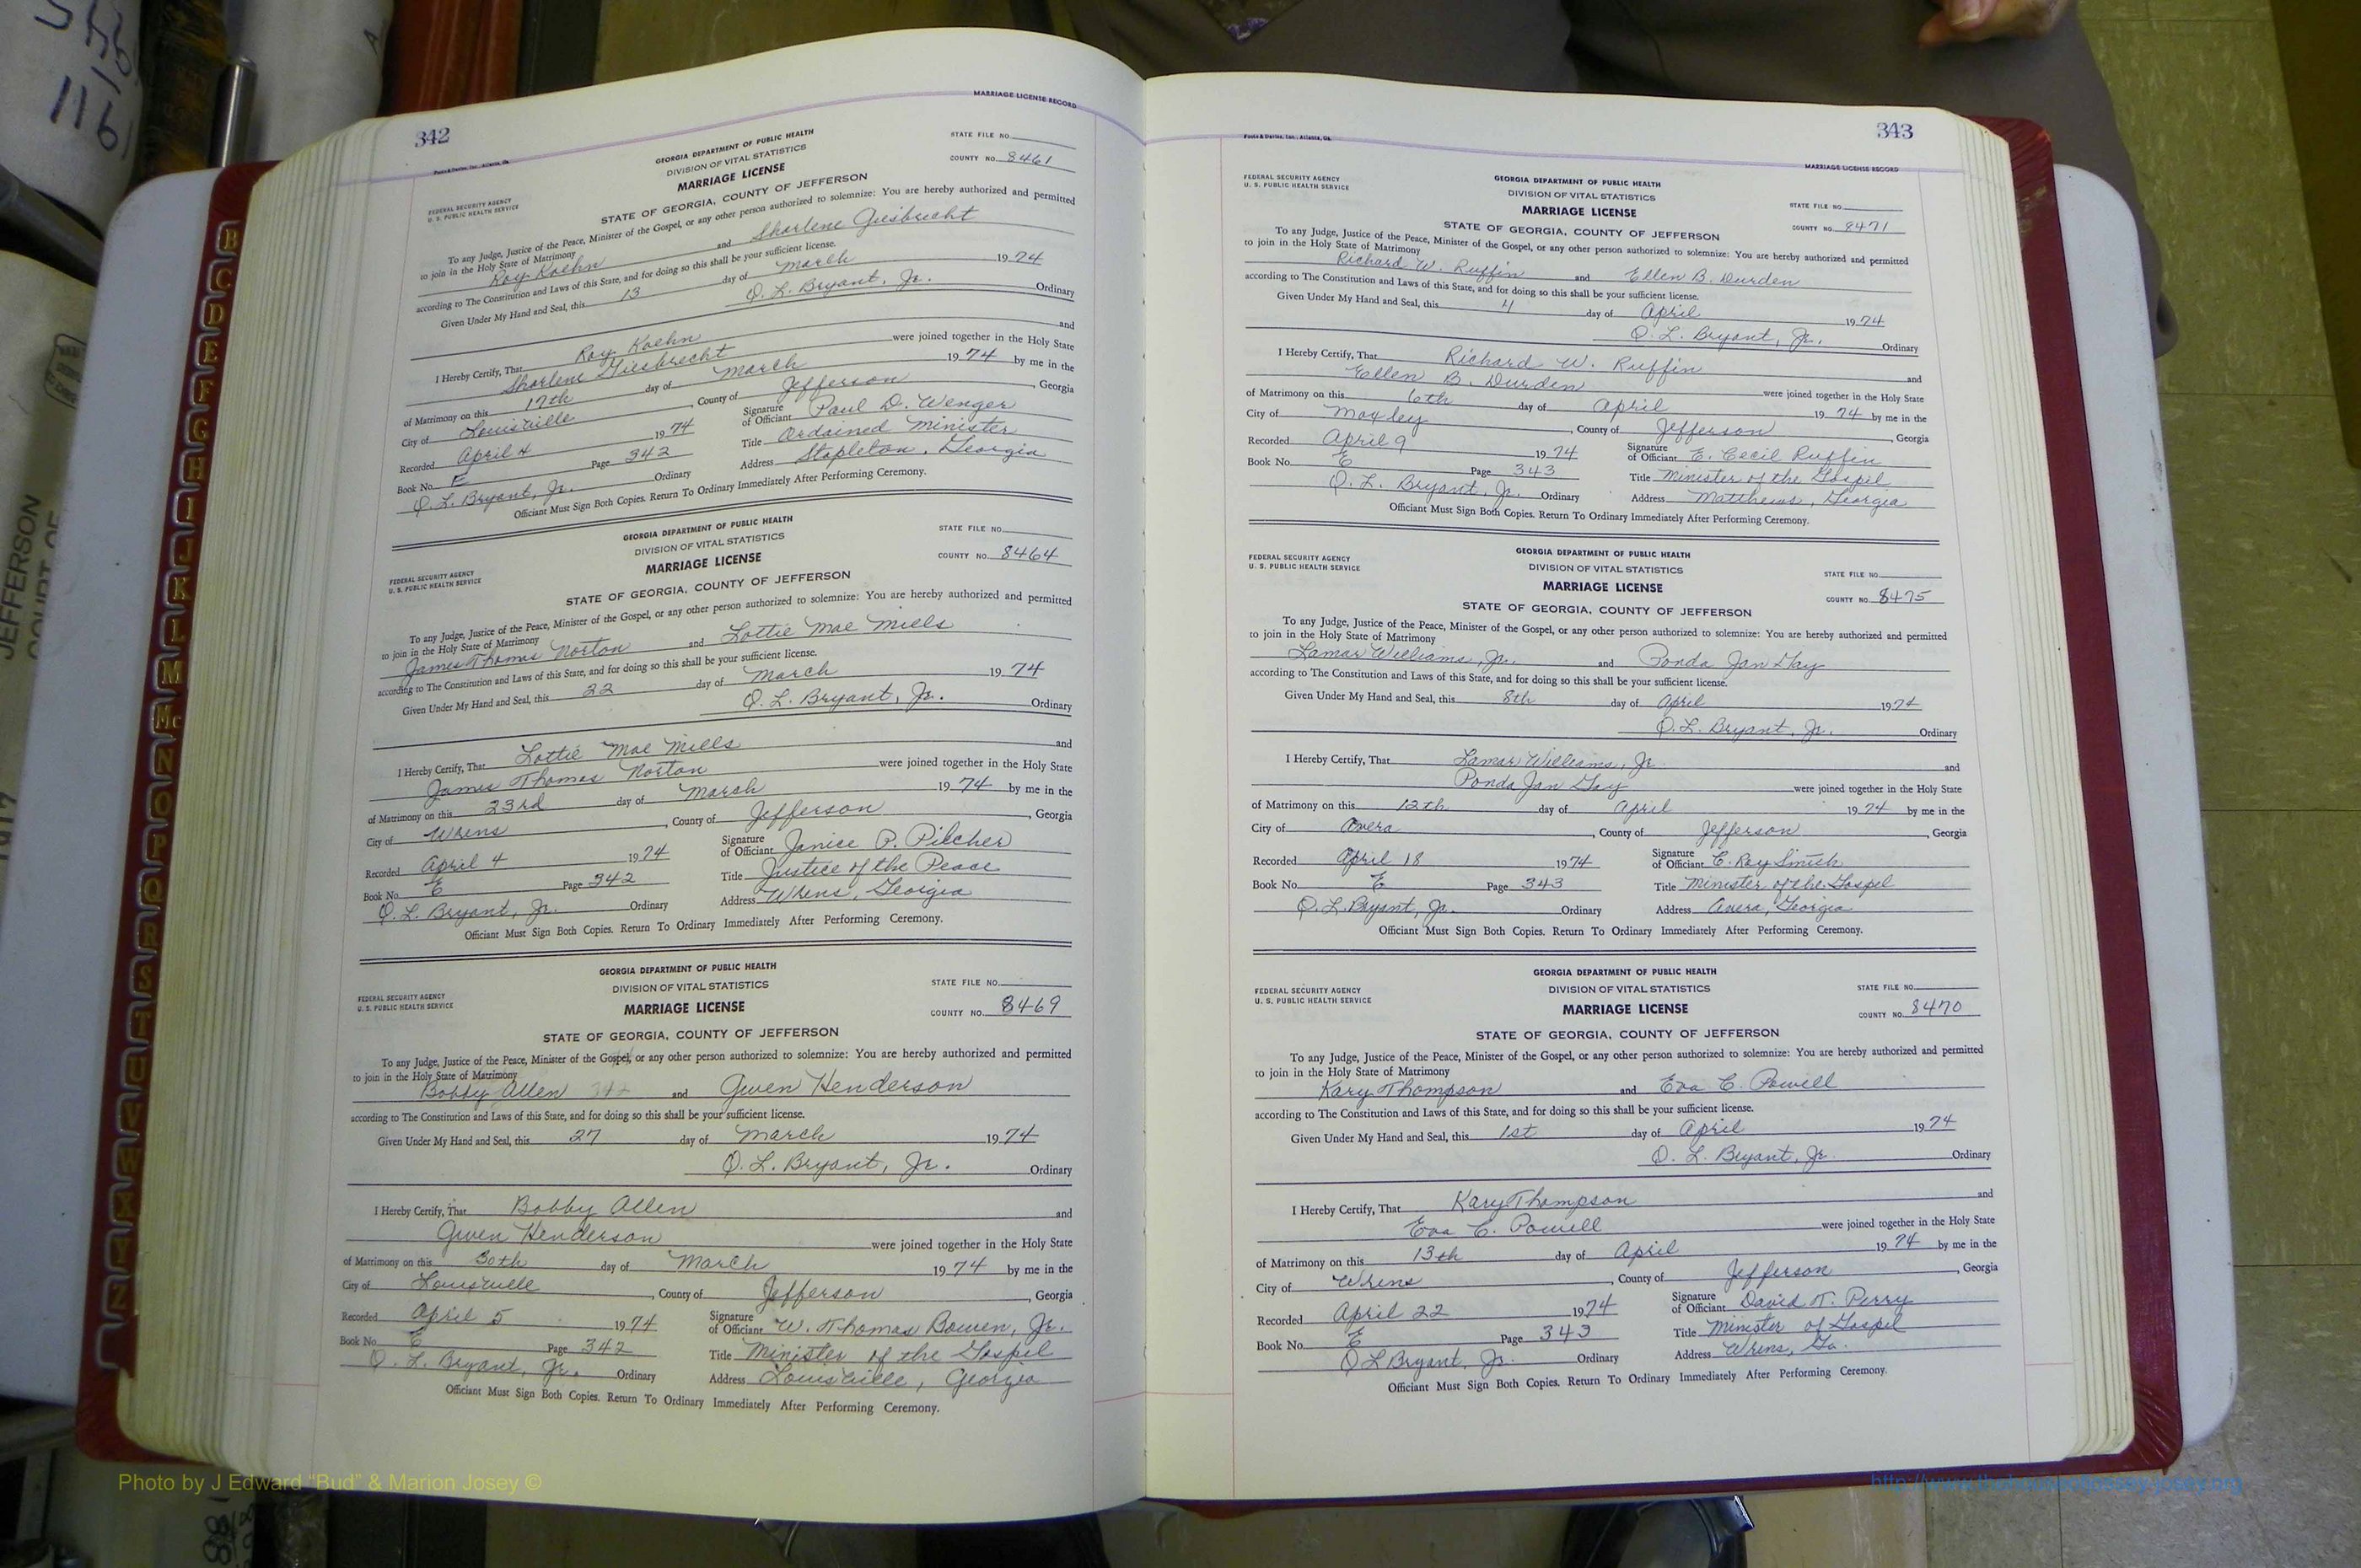 342
MARRIAGE LICENSE RECORD
Foote & Davies, Inc., Atlanta, Ga.
GEORGIA DEPARTMENT OF PUBLIC HEALTH
DIVISION OF VITAL STATISTICS
MARRIAGE LICENSE
STATE FILE NO.
COUNTY NO. 8461
FEDERAL SECURITY AGENCY
U. S. PUBLIC HEALTH SERVICE
STATE OF GEORGIA, COUNTY OF JEFFERSON
To any Judge, Justice of the Peace, Minister of the Gospel, or any other person authorized to solemnize: You are hereby authorized and permitted
to join in the Holy State of Matrimony
Roy Koehn and Sharlene Giesbrecht
according to The Constitution and Laws of this State, and for doing so this shall be your sufficient license.
Given Under My Hand and Seal, this 13 day of March 1974
Q. L. Bryant, Jr. Ordinary
I Hereby Certify, That Roy Koehn and
Sharlene Giesbrecht were joined together in the Holy State
of Matrimony on this 17th day of March 1974 by me in the
City of Louisville, County of Jefferson, Georgia
Recorded April 4 1974 Signature of Officiant Paul D. Wenger
Book No. E Page 342 Title Ordained Minister
Q. L. Bryant, Jr. Ordinary Address Stapleton, Georgia
Officiant Must Sign Both Copies. Return To Ordinary Immediately After Performing Ceremony.
GEORGIA DEPARTMENT OF PUBLIC HEALTH
DIVISION OF VITAL STATISTICS
MARRIAGE LICENSE
STATE FILE NO.
COUNTY NO. 8464
FEDERAL SECURITY AGENCY
U. S. PUBLIC HEALTH SERVICE
STATE OF GEORGIA, COUNTY OF JEFFERSON
To any Judge, Justice of the Peace, Minister of the Gospel, or any other person authorized to solemnize: You are hereby authorized and permitted
to join in the Holy State of Matrimony
James Thomas Norton and Lottie Mae Mills
according to The Constitution and Laws of this State, and for doing so this shall be your sufficient license.
Given Under My Hand and Seal, this 22 day of March 1974
Q. L. Bryant, Jr. Ordinary
I Hereby Certify, That Lottie Mae Mills and
James Thomas Norton were joined together in the Holy State
of Matrimony on this 23rd day of March 1974 by me in the
City of Wrens, County of Jefferson, Georgia
Recorded April 4 1974 Signature of Officiant Janice P. Pilcher
Book No. E Page 342 Title Justice of the Peace
Q. L. Bryant, Jr. Ordinary Address Wrens, Georgia
Officiant Must Sign Both Copies. Return To Ordinary Immediately After Performing Ceremony.
GEORGIA DEPARTMENT OF PUBLIC HEALTH
DIVISION OF VITAL STATISTICS
MARRIAGE LICENSE
STATE FILE NO.
COUNTY NO. 8469
FEDERAL SECURITY AGENCY
U. S. PUBLIC HEALTH SERVICE
STATE OF GEORGIA, COUNTY OF JEFFERSON
To any Judge, Justice of the Peace, Minister of the Gospel, or any other person authorized to solemnize: You are hereby authorized and permitted
to join in the Holy State of Matrimony
Bobby Allen 342 and Gwen Henderson
according to The Constitution and Laws of this State, and for doing so this shall be your sufficient license.
Given Under My Hand and Seal, this 27 day of March 1974
Q. L. Bryant, Jr. Ordinary
I Hereby Certify, That Bobby Allen and
Gwen Henderson were joined together in the Holy State
of Matrimony on this 30th day of March 1974 by me in the
City of Louisville, County of Jefferson, Georgia
Recorded April 5 1974 Signature of Officiant W. Thomas Bowen, Jr.
Book No. E Page 342 Title Minister of the Gospel
Q. L. Bryant, Jr. Ordinary Address Louisville, Georgia
Officiant Must Sign Both Copies. Return To Ordinary Immediately After Performing Ceremony.
343
Foote & Davies, Inc., Atlanta, Ga.
MARRIAGE LICENSE RECORD
FEDERAL SECURITY AGENCY
U. S. PUBLIC HEALTH SERVICE
GEORGIA DEPARTMENT OF PUBLIC HEALTH
DIVISION OF VITAL STATISTICS
MARRIAGE LICENSE
STATE FILE NO.
COUNTY NO. 8471
STATE OF GEORGIA, COUNTY OF JEFFERSON
To any Judge, Justice of the Peace, Minister of the Gospel, or any other person authorized to solemnize: You are hereby authorized and permitted
to join in the Holy State of Matrimony
Richard W. Ruffin and Ellen B. Durden
according to The Constitution and Laws of this State, and for doing so this shall be your sufficient license.
Given Under My Hand and Seal, this 4 day of April 1974
Q. L. Bryant, Jr. Ordinary
I Hereby Certify, That Richard W. Ruffin and
Ellen B. Durden were joined together in the Holy State
of Matrimony on this 6th day of April 1974 by me in the
City of Moxley, County of Jefferson, Georgia
Recorded April 9 1974 Signature of Officiant E. Cecil Ruffin
Book No. E Page 343 Title Minister of the Gospel
Q. L. Bryant, Jr. Ordinary Address Matthews, Georgia
Officiant Must Sign Both Copies. Return To Ordinary Immediately After Performing Ceremony.
FEDERAL SECURITY AGENCY
U. S. PUBLIC HEALTH SERVICE
GEORGIA DEPARTMENT OF PUBLIC HEALTH
DIVISION OF VITAL STATISTICS
MARRIAGE LICENSE
STATE FILE NO.
COUNTY NO. 8475
STATE OF GEORGIA, COUNTY OF JEFFERSON
To any Judge, Justice of the Peace, Minister of the Gospel, or any other person authorized to solemnize: You are hereby authorized and permitted
to join in the Holy State of Matrimony
Lamar Williams, Jr. and Ponda Jan Gay
according to The Constitution and Laws of this State, and for doing so this shall be your sufficient license.
Given Under My Hand and Seal, this 8th day of April 1974
Q. L. Bryant, Jr. Ordinary
I Hereby Certify, That Lamar Williams, Jr. and
Ponda Jan Gay were joined together in the Holy State
of Matrimony on this 12th day of April 1974 by me in the
City of Avera, County of Jefferson, Georgia
Recorded April 18 1974 Signature of Officiant C. Ray Smith
Book No. E Page 343 Title Minister of the Gospel
Q. L. Bryant, Jr. Ordinary Address Avera, Georgia
Officiant Must Sign Both Copies. Return To Ordinary Immediately After Performing Ceremony.
FEDERAL SECURITY AGENCY
U. S. PUBLIC HEALTH SERVICE
GEORGIA DEPARTMENT OF PUBLIC HEALTH
DIVISION OF VITAL STATISTICS
MARRIAGE LICENSE
STATE FILE NO.
COUNTY NO. 8470
STATE OF GEORGIA, COUNTY OF JEFFERSON
To any Judge, Justice of the Peace, Minister of the Gospel, or any other person authorized to solemnize: You are hereby authorized and permitted
to join in the Holy State of Matrimony
Kary Thompson and Eva C. Powell
according to The Constitution and Laws of this State, and for doing so this shall be your sufficient license.
Given Under My Hand and Seal, this 1st day of April 1974
Q. L. Bryant, Jr. Ordinary
I Hereby Certify, That Kary Thompson and
Eva C. Powell were joined together in the Holy State
of Matrimony on this 13th day of April 1974 by me in the
City of Wrens, County of Jefferson, Georgia
Recorded April 22 1974 Signature of Officiant David T. Perry
Book No. E Page 343 Title Minister of Gospel
Q L Bryant, Jr. Ordinary Address Wrens, Ga.
Officiant Must Sign Both Copies. Return To Ordinary Immediately After Performing Ceremony.
B
C
D
E
F
G
H
I
J
K
L
M
Mc
N
O
P
Q
R
S
T
U
V
W
X
Y
Z
JEFFERSON
COURT OF
Photo by J Edward “Bud” & Marion Josey ©